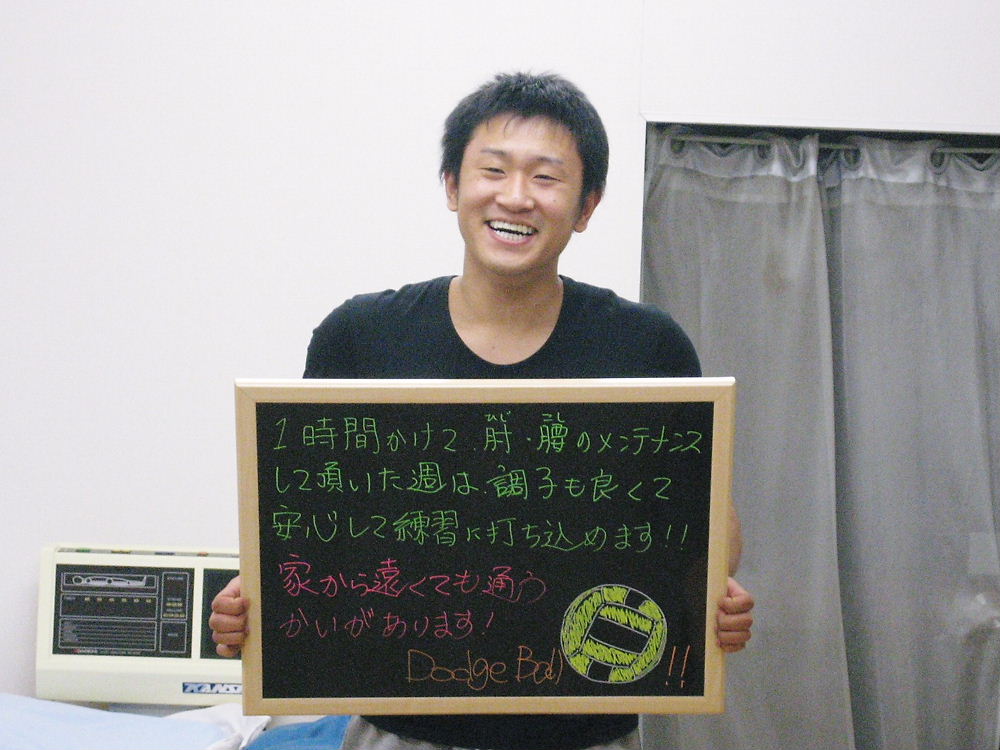 1時間かけて、肘・腰のメンテナンス
して頂いた週は、調子も良くて
安心して練習に打ち込めます!!
家から遠くても通う
かいがあります!
Dodge Ball!!